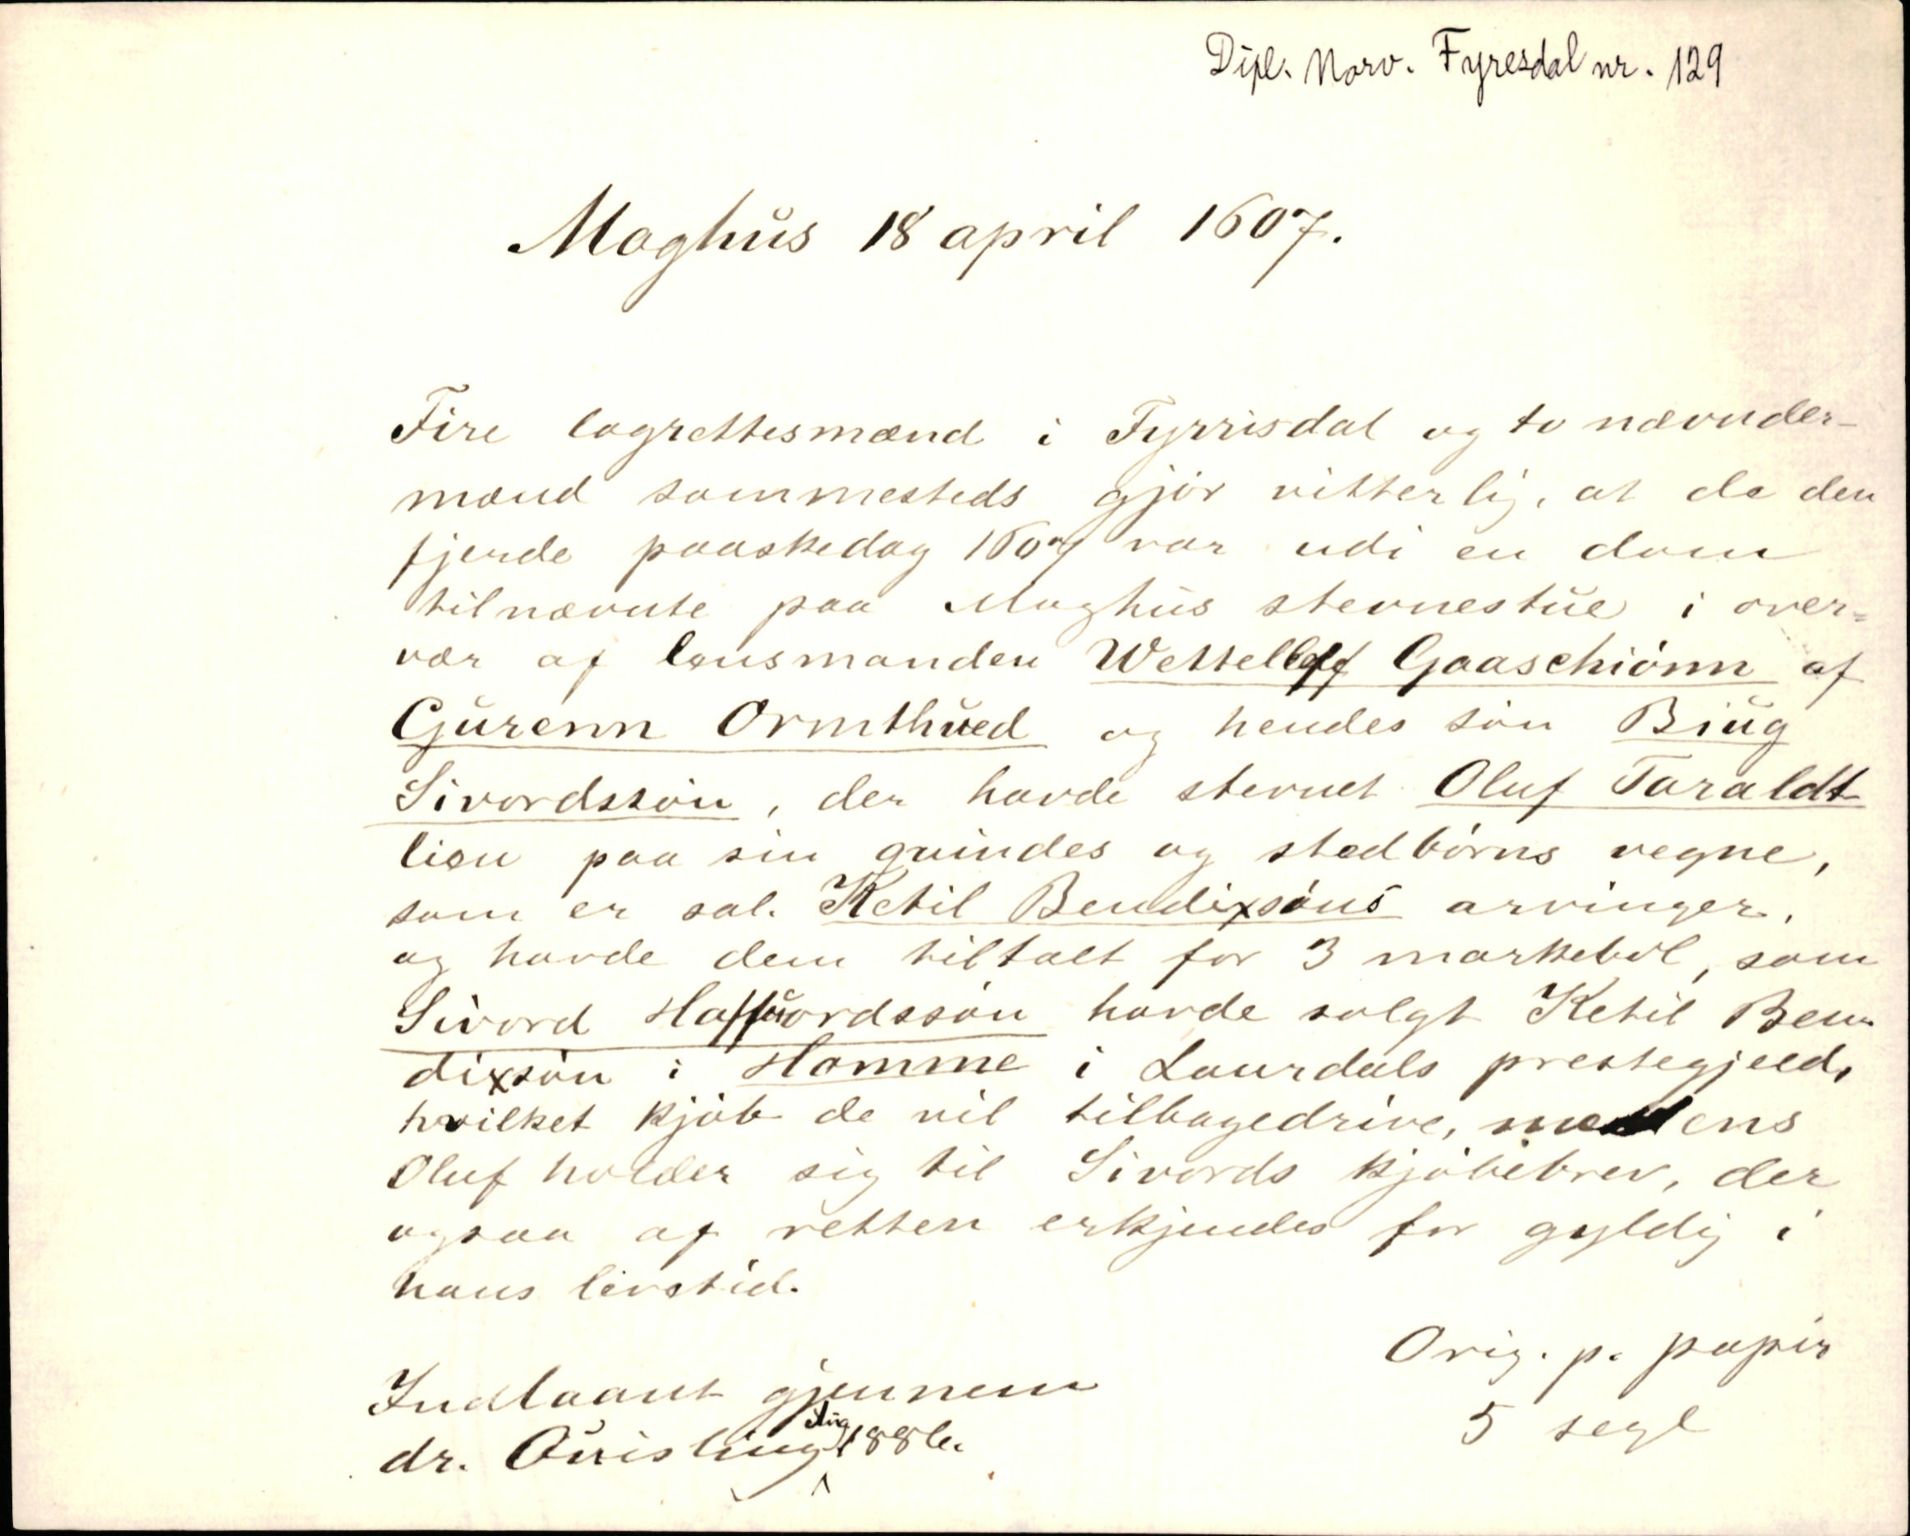 Dipl. Norv. Fyresdal nr. 129
Moghus 18 april 1607.
Fire lagrettesmænd i Fyrrisdal og to nævnder-
mænd sammesteds gjör vitterlig, at de den
fjerde paaskedag 1607 var udi en dom
tilnævnte paa Moghus stevnestue i over-
vær af lensmanden Wettelleff Gaaschiönn af
Gurenn Ormthued og hendes sön Biug
Sivordssön, der havde stevnet Oluf Taraldt
lien paa sin qvindes og stedbörns vegne,
som er sal. Ketil Bendixsöns arvinger,
og havde dem tiltalt for 3 markeböl, som
Sivord Haffuordssön havde solgt Ketil Ben-
dixsön i Homme i Laurdals prestegjeld,
hvilket kjöb de vil tilbagedrive, medens
Oluf holder sig til Sivords kjöbebrev, der
ogsaa af retten erkjendes for gyldig i
hans livstid.
Orig. p. papir
5 segl
Indlaant gjennem
dr. Quisling Aug 1886.